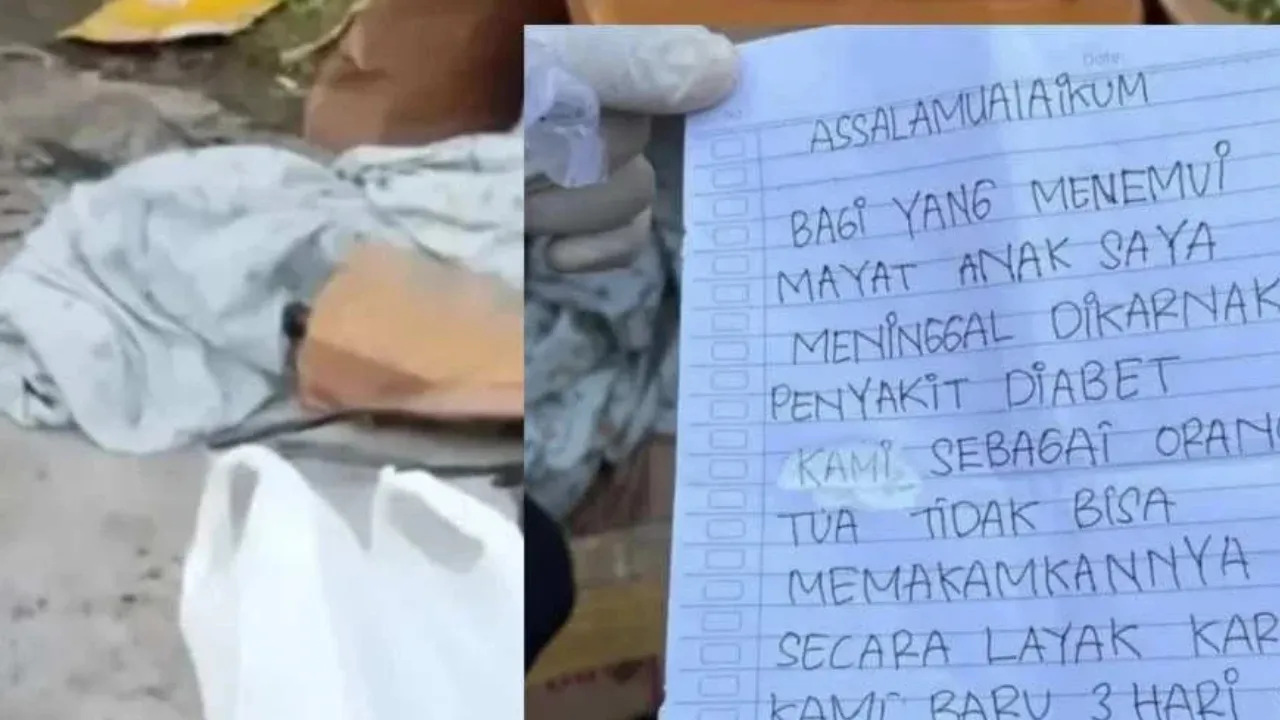 Date
ASSALAMUALAIKUM
BAGI YANG MENEMUI
MAYAT ANAK SAYA
MENINGGAL DIKARNAK
PENYAKIT DIABET
KAMI SEBAGAI ORANG
TUA TIDAK BISA
MEMAKAMKANNYA
SECARA LAYAK KAR
KAMI BARU 3 HARI